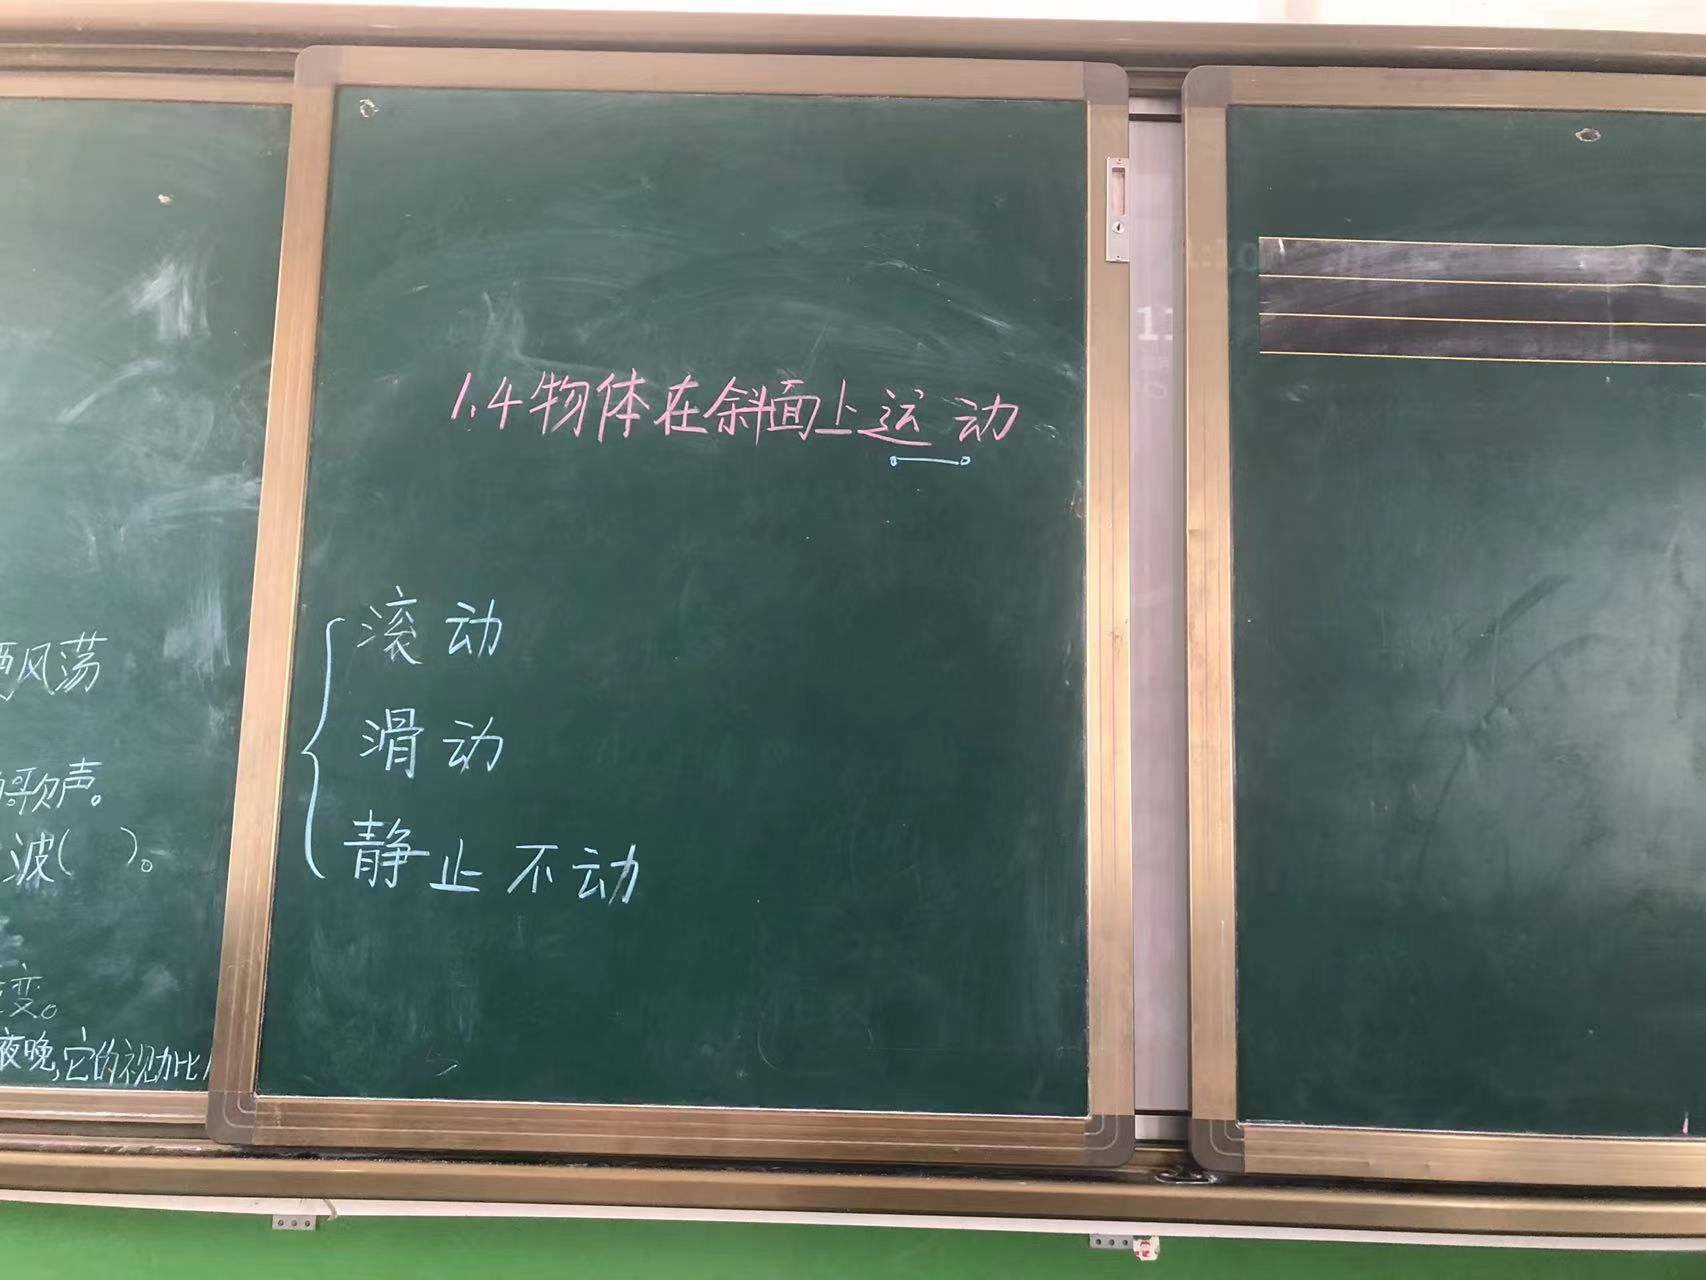 1.4物体在斜面上运动
滚动
滑动
静止不动
风荡
歌声。
波( )。
变。
夜晚,它的视力比